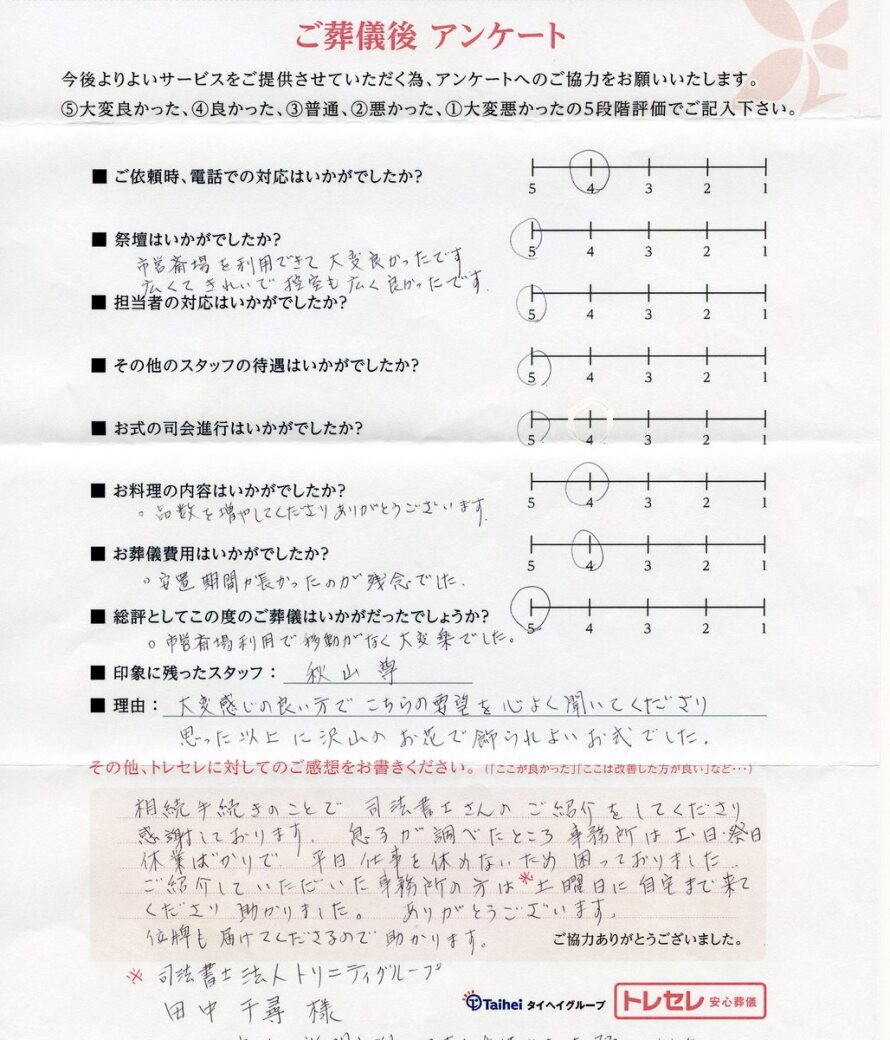 ご葬儀後 アンケート
今後よりよいサービスをご提供させていただく為、アンケートへのご協力をお願いいたします。
⑤大変良かった、④良かった、③普通、②悪かった、①大変悪かったの5段階評価でご記入下さい。
■ ご依頼時、電話での対応はいかがでしたか?
5 4 3 2 1
■ 祭壇はいかがでしたか?
5 4 3 2 1
市営斎場を利用できて大変良かったです
広くてきれいで控室も広く良かったです.
■ 担当者の対応はいかがでしたか?
5 4 3 2 1
■ その他のスタッフの待遇はいかがでしたか?
5 4 3 2 1
■ お式の司会進行はいかがでしたか?
5 4 3 2 1
■ お料理の内容はいかがでしたか?
5 4 3 2 1
。品数を増やしてくださりありがとうございます.
■ お葬儀費用はいかがでしたか?
5 4 3 2 1
。安置期間が長かったのが残念でした.
■ 総評としてこの度のご葬儀はいかがだったでしょうか?
5 4 3 2 1
。市営斎場利用で移動がなく大変楽でした。
■ 印象に残ったスタッフ: 秋山 尊
■ 理由: 大変感じの良い方でこちらの要望を心よく聞いてくださり
思った以上に沢山のお花で飾られよいお式でした.
その他、トレセレに対してのご感想をお書きください。(「ここが良かった」「ここは改善した方が良い」など・・・)
相続手続きのことで 司法書士さんのご紹介をしてくださり
感謝しております. 息子が調べたところ事務所は土・日・祭日
休業ばかりで 平日仕事を休めないため困っておりました.
ご紹介していただいた事務所の方は※土曜日に自宅まで来て
くださり助かりました。 ありがとうございます.
位牌も届けてくださるので助かります。
ご協力ありがとうございました。
※ 司法書士法人トリニティグループ
田中千尋様
Taihei タイヘイグループ トレセレ 安心葬儀